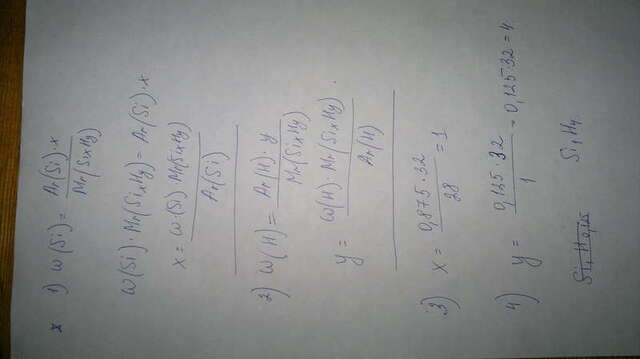 x 1) ω(Si) = Ar(Si)·x / Mr(SixHy)
ω(Si)·Mr(SixHy) = Ar(Si)·x
x = ω(Si) Mr(SixHy) / Ar(Si)
2) ω(H) = Ar(H)·y / Mr(SixHy)
y = ω(H)·Mr(SixHy) / Ar(H) .
3) x = 0,875·32 / 28 = 1
4) y = 0,125·32 / 1 = 0,125·32 = 4
Si1H4